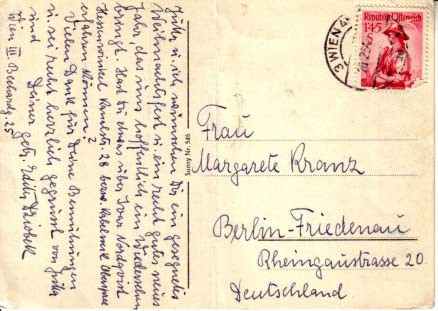 Jutta u. ich wünschen Dir ein gesegnetes
Weihnachtsfest u. ein recht gutes neues
Jahr, das uns hoffentlich ein Wiedersehen
bringt. Hast Du etwas über Ivar Nordqvist
Hessenwinkel 28 bezw.
erfahren können?
Vielen Dank für Deine Bemühungen
u. sei recht herzlich gegrüsst von Jutta
und Deiner getr.
Wien III 25
Nr. 546
Republik Österreich
1.45
S
3 WIEN 4
Frau
Margarete Kranz
Berlin-Friedenau
Rheingaustrasse 20
Deutschland.